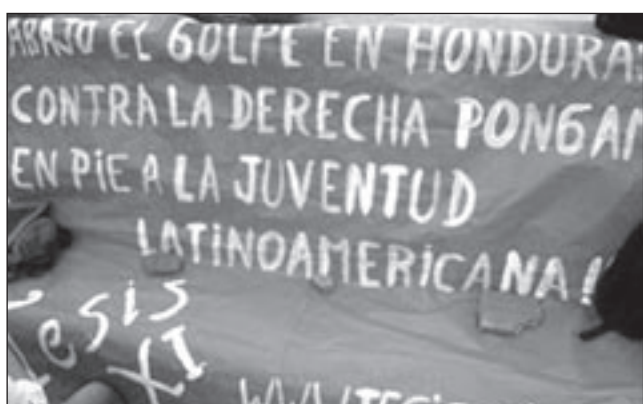 ABAJO EL GOLPE EN HONDURAS
CONTRA LA DERECHA PONGAM
EN PIE A LA JUVENTUD
LATINOAMERICANA!!
Tesis
XI
WWW.TESIS